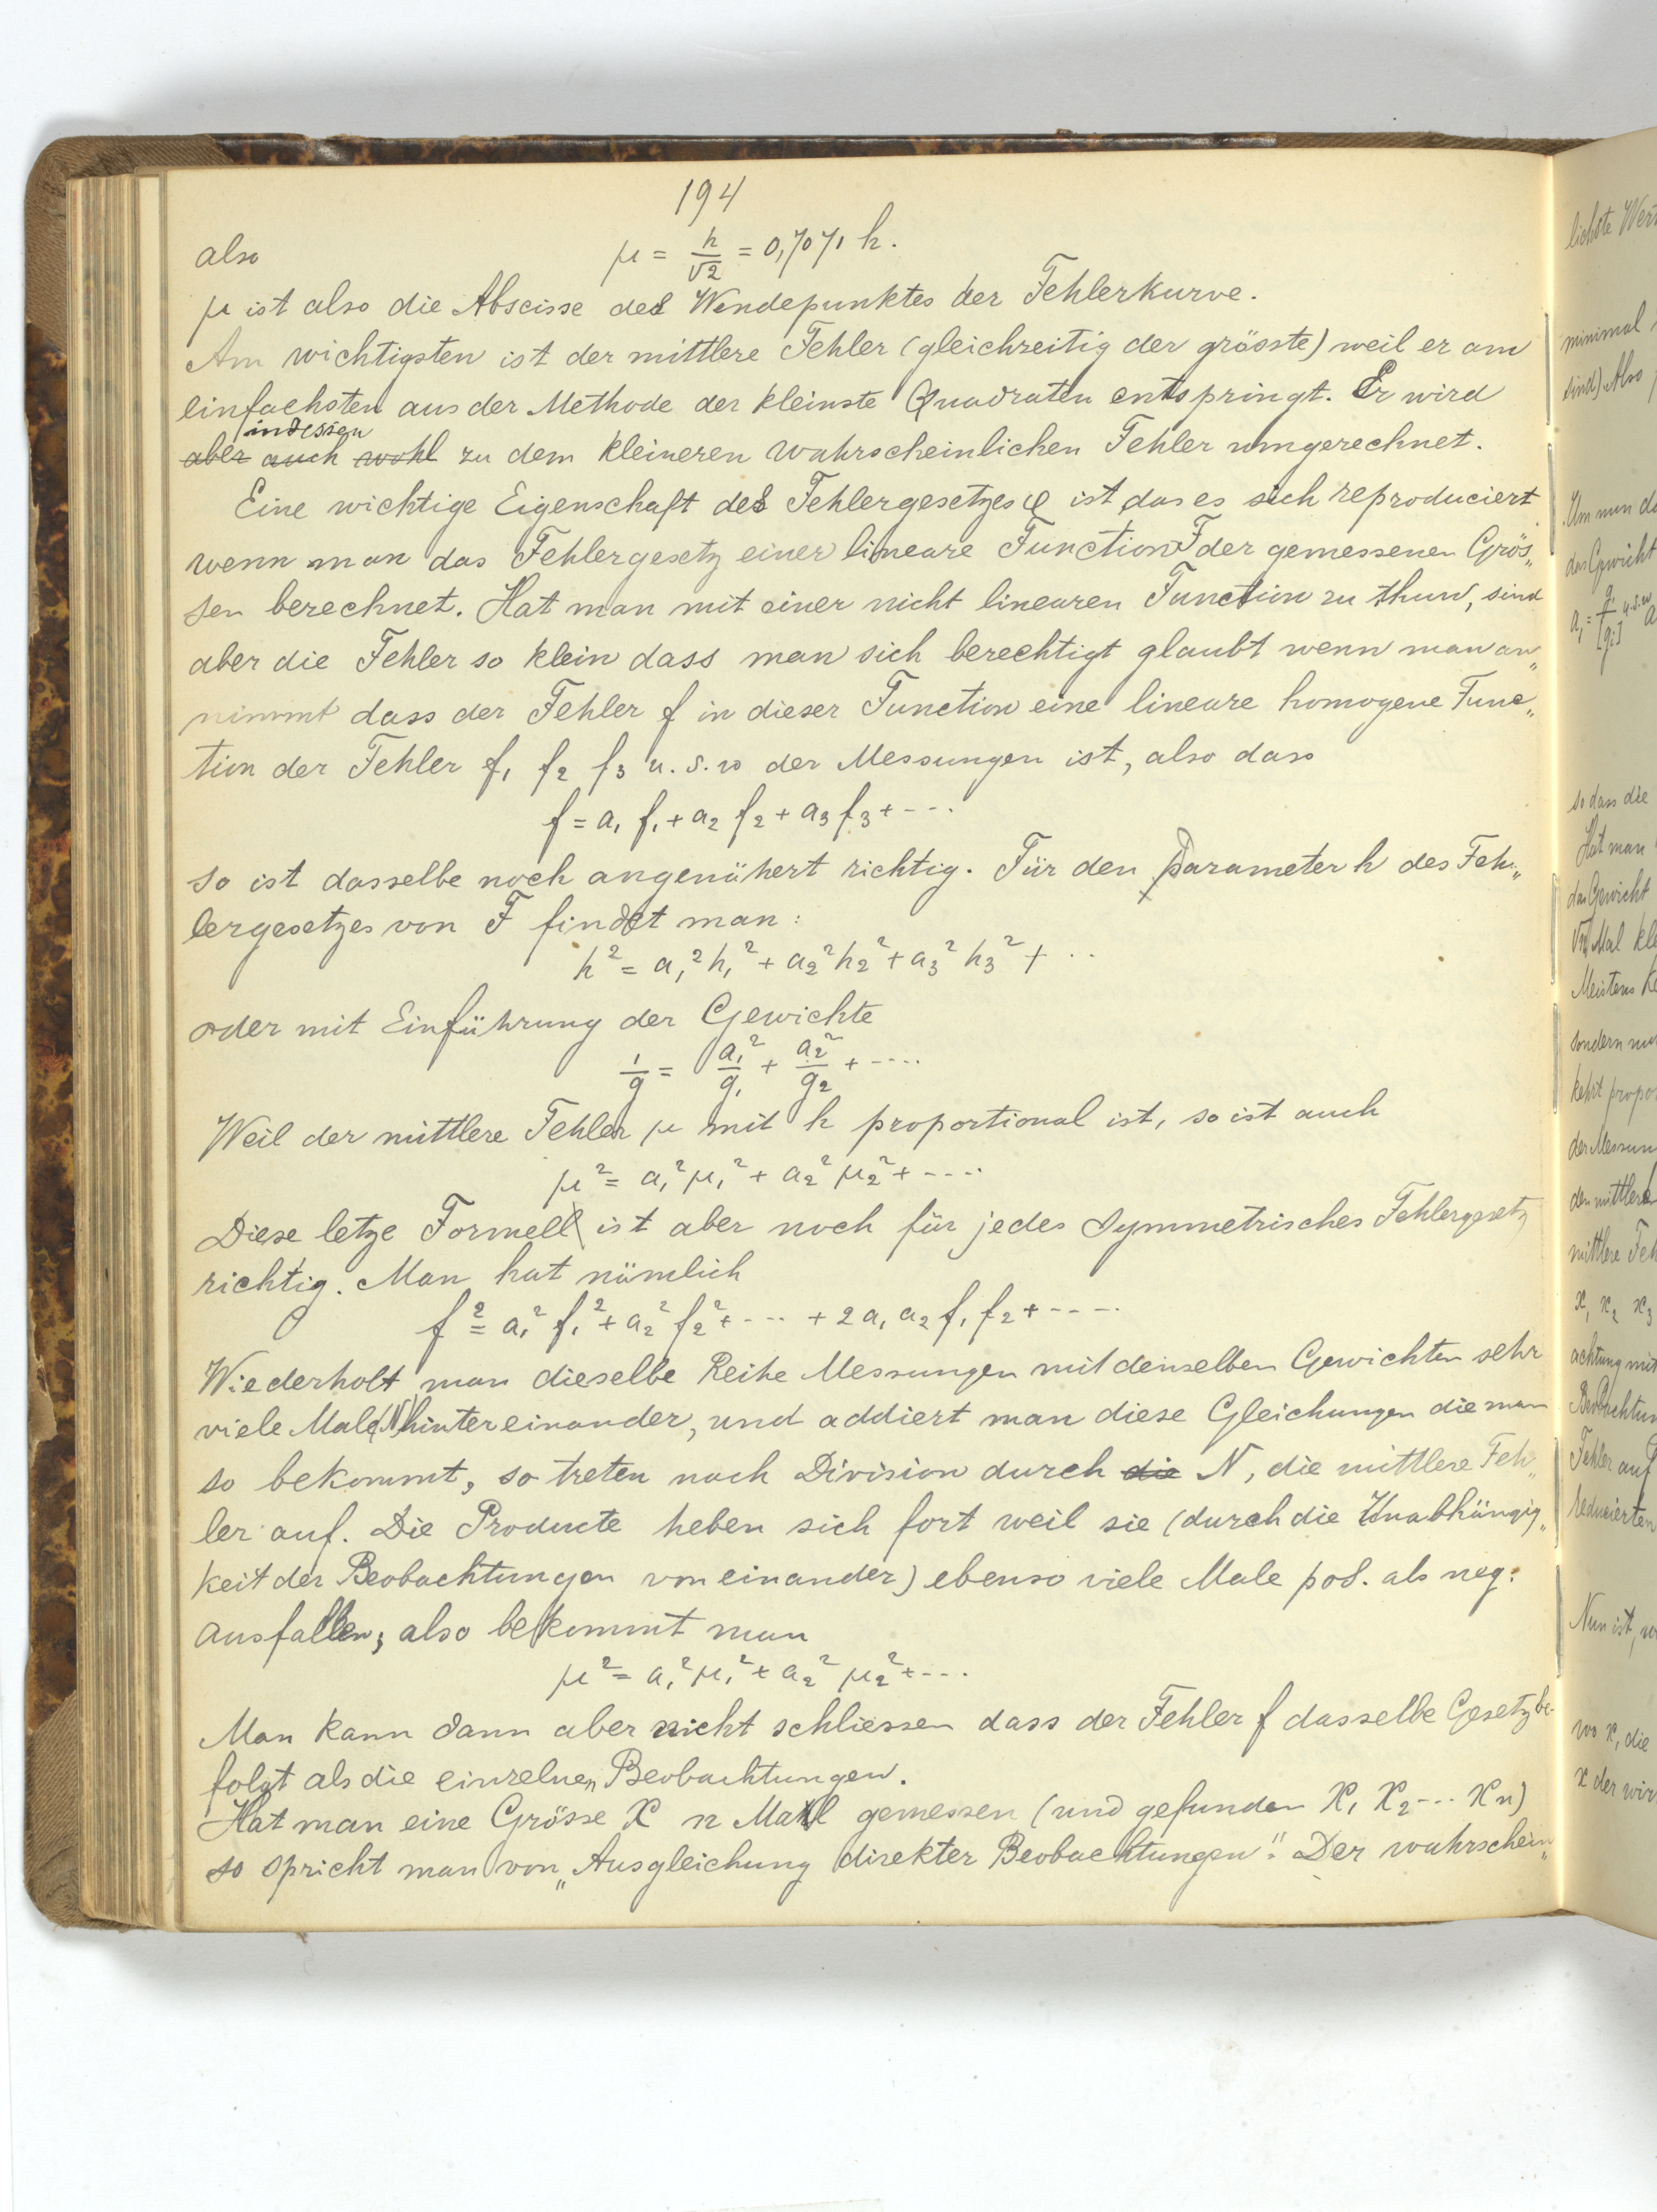 194
also μ = h/√2 = 0,7071 h.
μ ist also die Abscisse des Wendepunktes der Fehlerkurve.
Am wichtigsten ist der mittlere Fehler (gleichzeitig der grösste) weil er am
einfachsten aus der Methode der kleinste Quadraten entspringt. Er wird
indessen
aber auch wohl zu dem kleineren wahrscheinlichen Fehler umgerechnet.
Eine wichtige Eigenschaft des Fehlergesetzes φ ist das es sich reproduciert
wenn man das Fehlergesetz einer lineare Function F der gemessenen Grös„
sen berechnet. Hat man mit einer nicht linearen Function zu thun, sind
aber die Fehler so klein dass man sich berechtigt glaubt wenn man an„
nimmt dass der Fehler f in dieser Function eine lineare homogene Func„
tion der Fehler f₁ f₂ f₃ u.s.w der Messungen ist, also dass
f = a₁ f₁ + a₂ f₂ + a₃ f₃ + ---
so ist dasselbe noch angenähert richtig. Für den Parameter h des Feh„
lergesetzes von F findet man:
h² = a₁² h₁² + a₂² h₂² + a₃² h₃² + ··
oder mit Einführung der Gewichte
1/g = a₁²/g₁ + a₂²/g₂ + ----
Weil der mittlere Fehler μ mit h proportional ist, so ist auch
μ² = a₁² μ₁² + a₂² μ₂² + ----
Diese letze Formel ist aber noch für jedes Symmetrisches Fehlergesetz
richtig. Man hat nämlich
f² = a₁² f₁² + a₂² f₂² + --- + 2 a₁ a₂ f₁ f₂ + ----
Wiederholt man dieselbe Reihe Messungen mit denselben Gewichten sehr
viele Male (N) hintereinander, und addiert man diese Gleichungen die man
so bekommt, so treten nach Division durch die N, die mittlere Feh„
ler auf. Die Producte heben sich fort weil sie (durch die Unabhängig„
keit der Beobachtungen von einander) ebenso viele Male pos. als neg.
ausfallen; also bekommt man
μ² = a₁² μ₁² + a₂² μ₂² + ---
Man kann dann aber nicht schliessen dass der Fehler f dasselbe Gesetz be-
folgt als die einzelnen Beobachtungen.
Hat man eine Grösse x n Mal gemessen (und gefunden x₁ x₂ --- xₙ)
so spricht man von „Ausgleichung direkter Beobachtungen". Der wahrschein„
lichste Wert
minimal
sind) Also
Um nun
das Gewicht
u.s.w
so dass die
Hat man
das Gewicht
Mal
Meistens
sondern
kehrt
der
den mittleren
mittlere
x₁ x₂ x₃
achtung mit
Fehler auf
reducierten
Nun ist,
wo x₁ die
x der